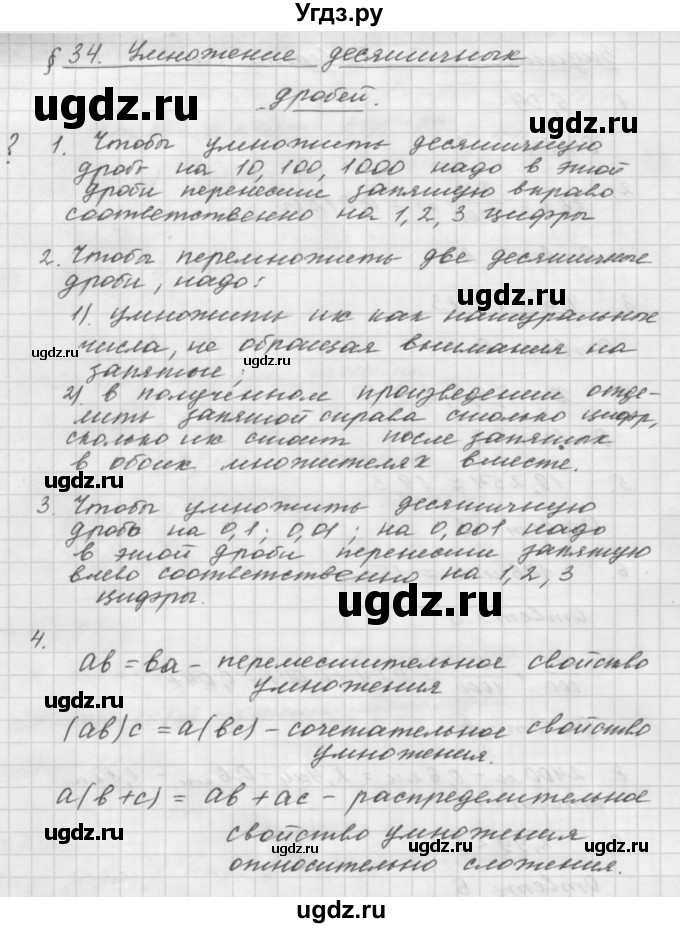 Угдз.ру
§ 34. Умножение десятичных
дробей.
ugdz.ru ugdz.ru
? 1. Чтобы умножить десятичную
дробь на 10, 100, 1000 надо в этой
дроби перенести запятую вправо
соответственно на 1, 2, 3 цифры
2. Чтобы перемножить две десятичные
дроби, надо:
ugdz.ru
1). умножить их как натуральные
числа, не обращая внимания на
запятые;
ugdz.ru ugdz.ru
2) в полученном произведении отде-
лить запятой справа столько цифр,
сколько их стоит после запятых
в обоих множителях вместе.
ugdz.ru
3. Чтобы умножить десятичную
дробь на 0,1; 0,01; на 0,001 надо
в этой дроби перенести запятую
влево соответственно на 1, 2, 3
цифры.
ugdz.ru
4.
ав = ва - переместительное свойство
умножения
ugdz.ru ugdz.ru
(ав)с = а(вс) - сочетательное свойство
умножения.
ugdz.ru
а(в+с) = ав + ас - распределительное
свойство умножения
относительно сложения.
ugdz.ru ugdz.ru
ugdz.ru